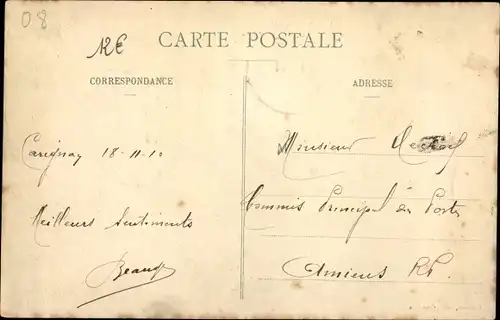 08
12E
CARTE POSTALE
CORRESPONDANCE
ADRESSE
Carignay 18-11-10
Meilleurs Sentiments
Monsieur
Commis Principal des Postes
Amiens RP.